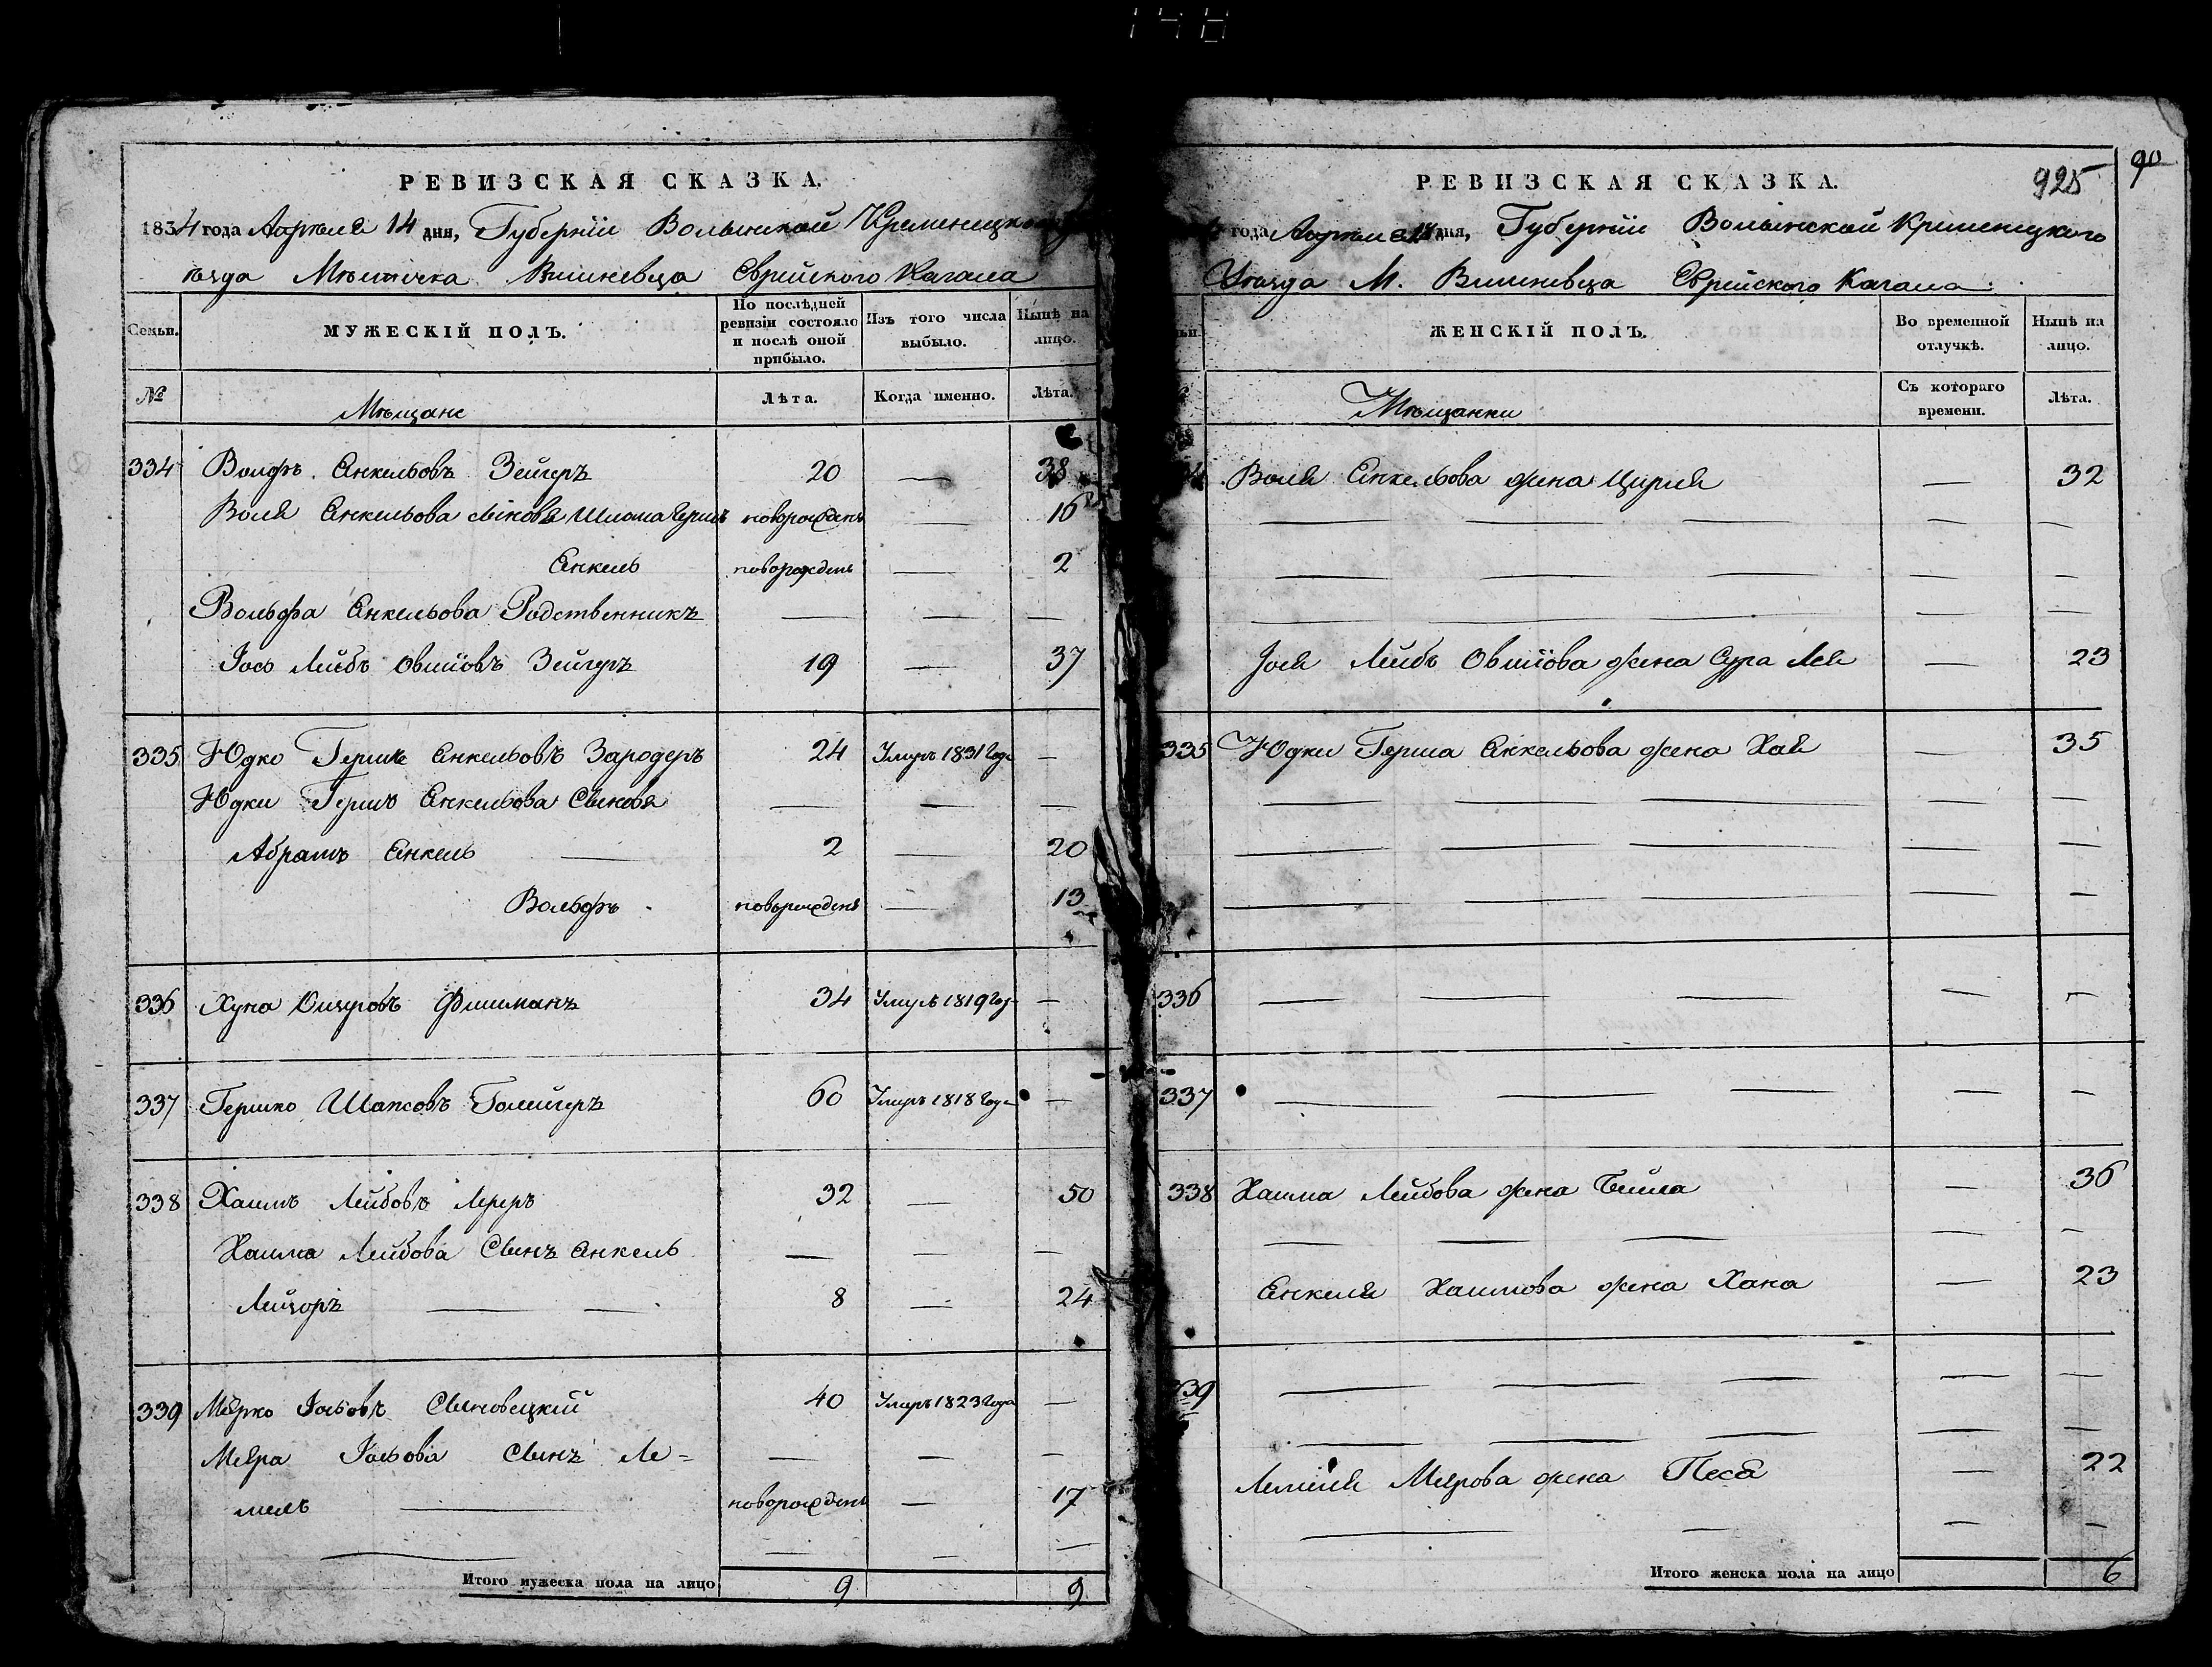 РЕВИЗСКАЯ СКАЗКА.
1834 года Апреля 14 дня, Губерніи Волынской Кременецкого
уезда Мѣстечка Вишневца Еврейского Кагала
Семьи.
МУЖЕСКІЙ ПОЛЪ.
По послѣдней ревизіи состояло и послѣ оной прибыло.
Изъ того числа выбыло.
Нынѣ на лицо.
№
Мѣщане
Лѣта.
Когда именно.
Лѣта.
334 Волфъ Енкельовъ Зейгеръ 20 — 38
Воля Енкельова синовя Шлома Герш новорожденъ — 16
Енкель новорожденъ — 2
Вольфа Енкельова Родственникъ — — —
Іось Лейбъ Овшіовъ Зейгеръ 19 — 37
335 Юдко Гершъ Енкельовъ Зародеръ 24 Умеръ 1831 года —
Юдки Герша Енкельова Сыновя — — —
Абрамъ Енкель — 2 — 20
Вольфъ новорожденъ — 13
336 Хуна Фишманъ 34 Умеръ 1819 год —
337 Гершко Шапсовъ 60 Умеръ 1818 года —
338 Хаимъ Лейбовъ Лереръ 32 — 50
Хаима Лейбова Сынъ Енкель — — —
Лейзоръ — — 8 — 24
339 Меерко Іосьовъ Сыновецкий 40 Умеръ 1823 года —
Меера Іосьова Сынъ Ле= — — —
мель — новорожденъ — 17
— — — —
Итого мужеска пола на лицо 9 9
925
90
РЕВИЗСКАЯ СКАЗКА.
года Апреля 14 дня, Губерніи Волынской Кременецкого
Уезда М. Вишневца Еврейского Кагала
ЖЕНСКІЙ ПОЛЪ.
Во временной отлучкѣ.
Нынѣ на лицо.
Мѣщанки
Съ котораго времени.
Лѣта.
Воля Енкельова жена Цирля — 32
— — — — —
— — — — —
— — —
Іося Лейбъ Овшіова жена Сура Лея — 23
335 Юдки Герша Енкельова жена Хая — 35
— — — — —
— — — — —
— — — — —
336 — — — — —
337 — — — — —
338 Хаима Лейбова жена Бейла — 36
— — — — —
Енкеля Хаимова жена Хана — 23
339 — — — — —
— — — — —
Лемеля Меерова жена Песя — 22
— — — —
Итого женска пола на лицо 6